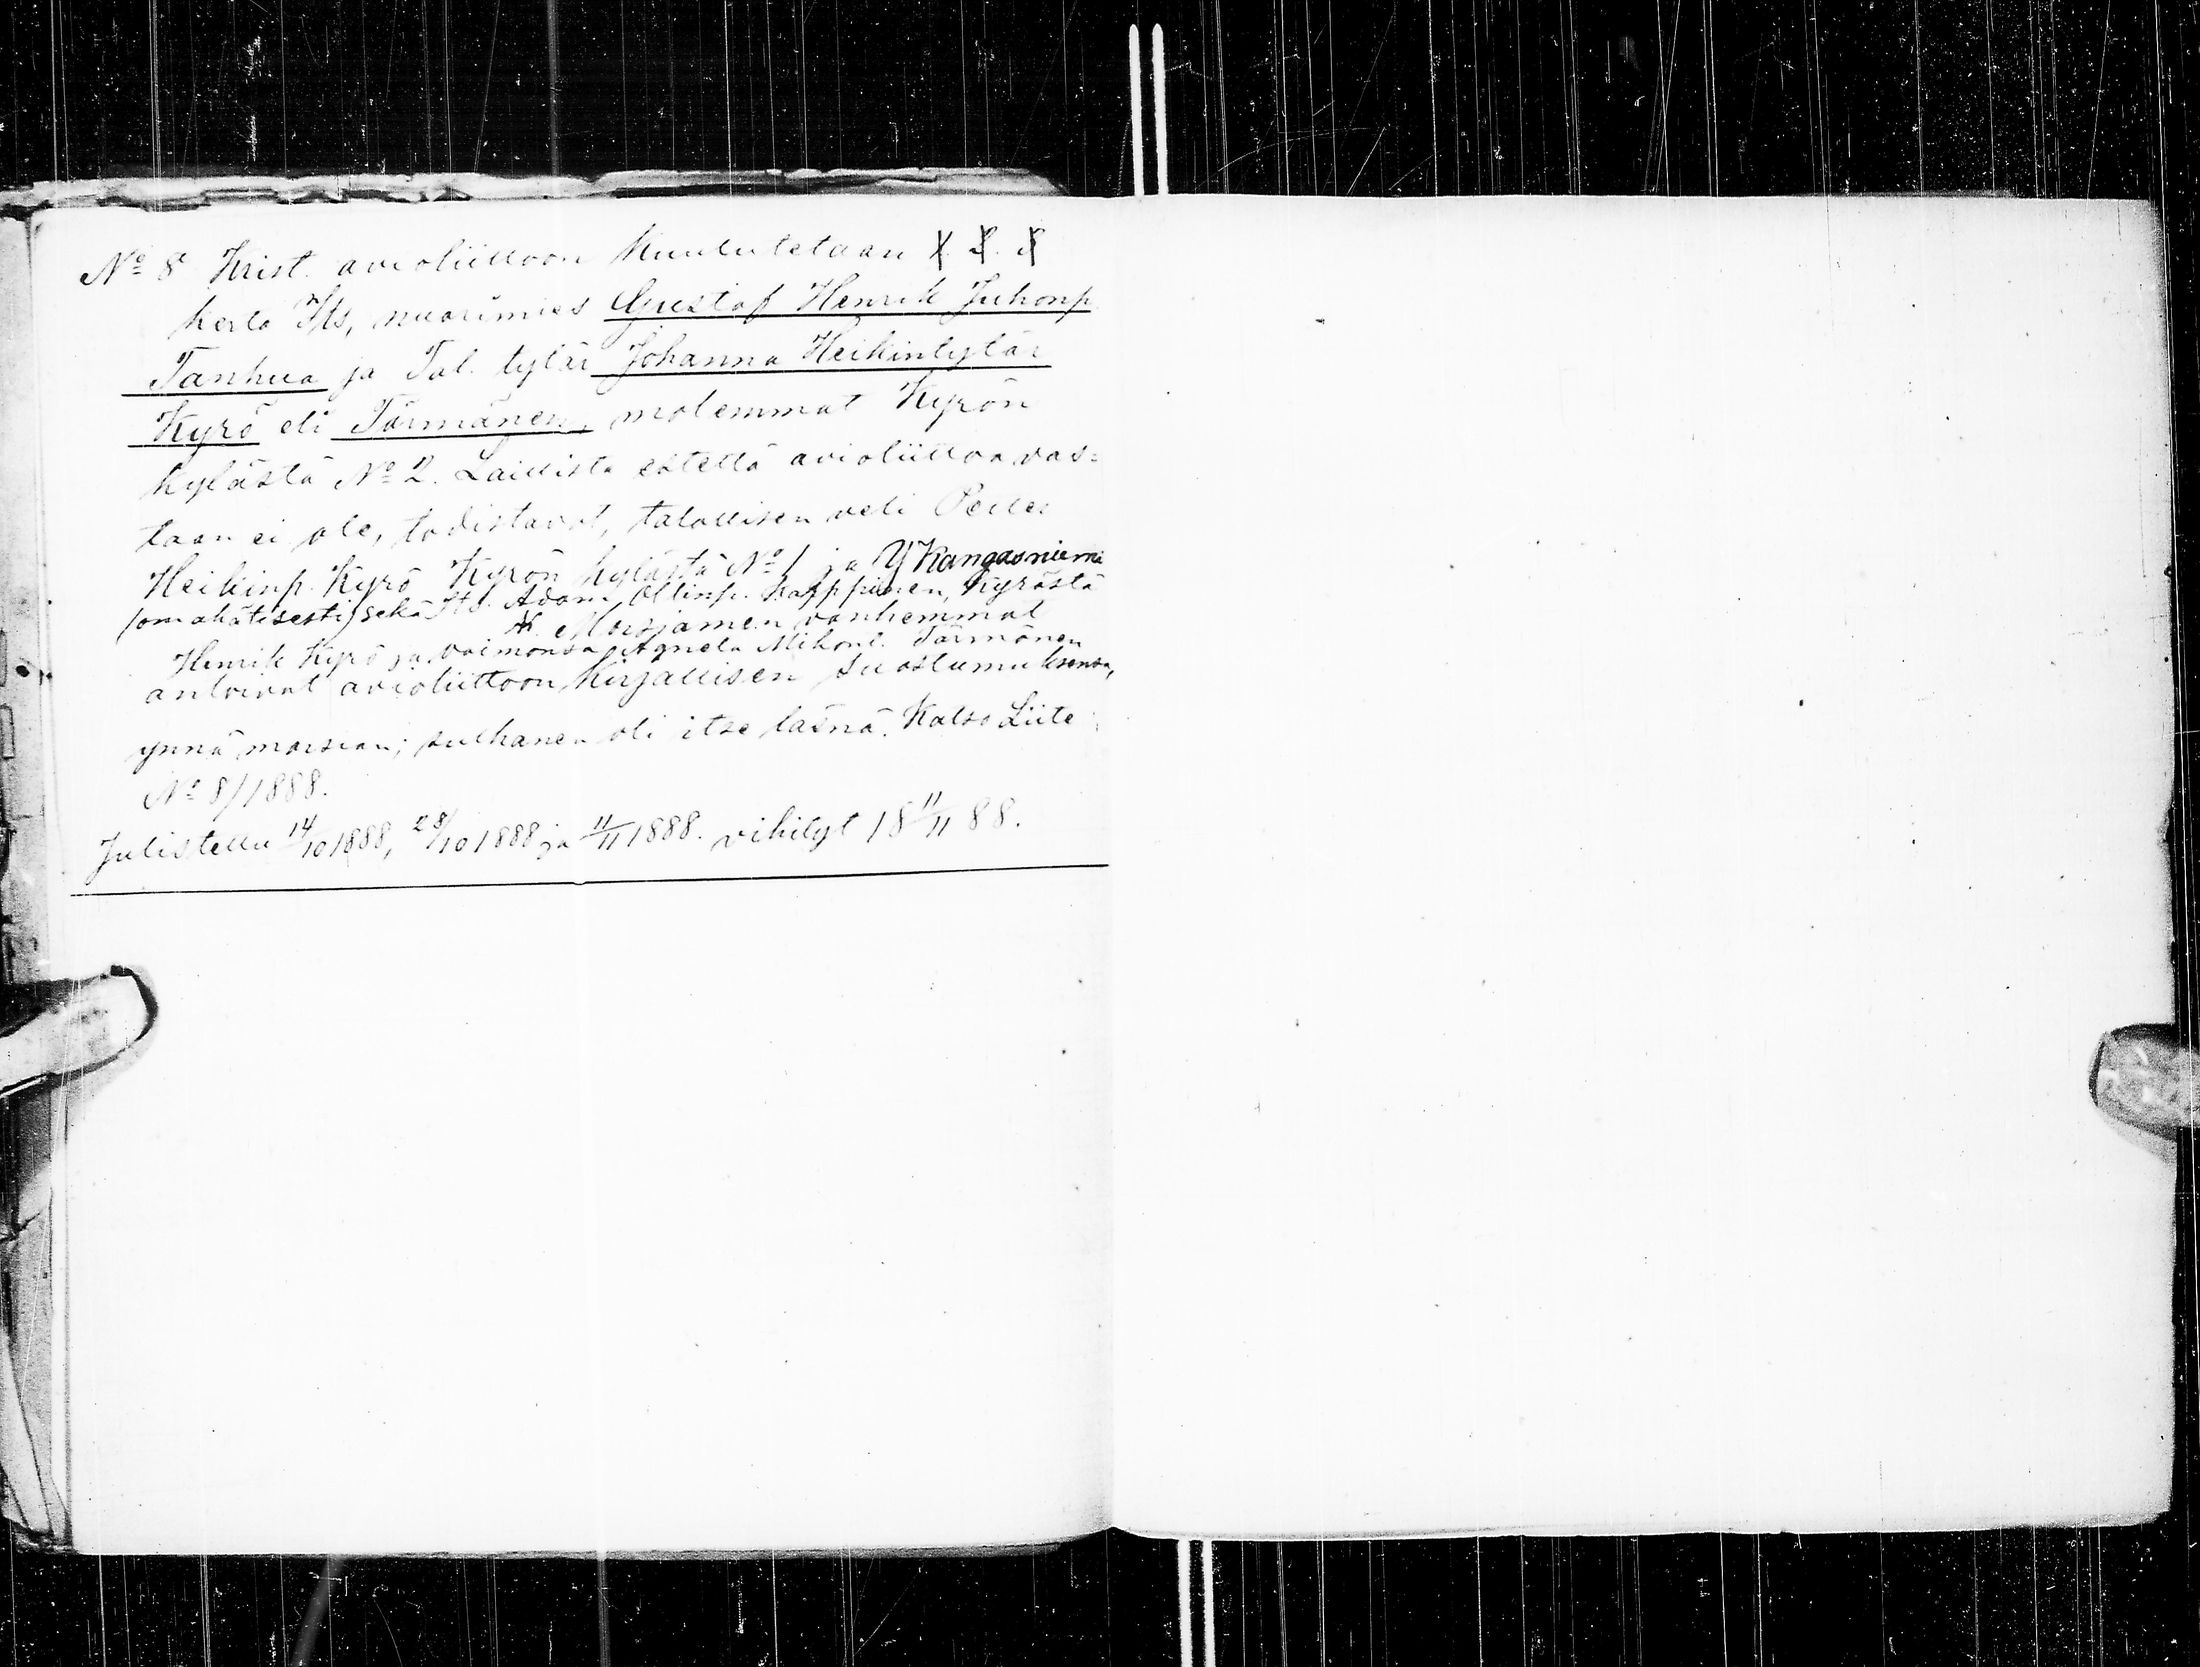 No 8 Krist. avioliittoon kuulutetaan
kerta Its, nuorimies Gustaf Henrik Juhonp
Tanhua ja Tal. tytär Johanna Heikintytär
Kyrö eli Törmänen, molemmat Kyrön
kylästä No 2. Laillista estettä avioliittoa vas=
taan ei ole, todistavat, talollisen veli Petter
Heikinp. Kyrö Kyrön kylästä No 1 ja Y Kangasniemi
(omakätisesti) sekä Its. Adam Ollinp. Kapppinen, Kyröstä
Morsjamen vanhemmat
Henrik Kyrö ja vaimonsa Agneta Mikont. Törmänen
antoivat avioliittoon kirjallisen suostumuksensa,
ynnä morsian; sulhanen oli itse läsnä. Katso Liite
No 8/1888.
Julistettu 14/10 1888, 28/10 1888 ja 11/11 1888. vihityt 18 11/11 88.